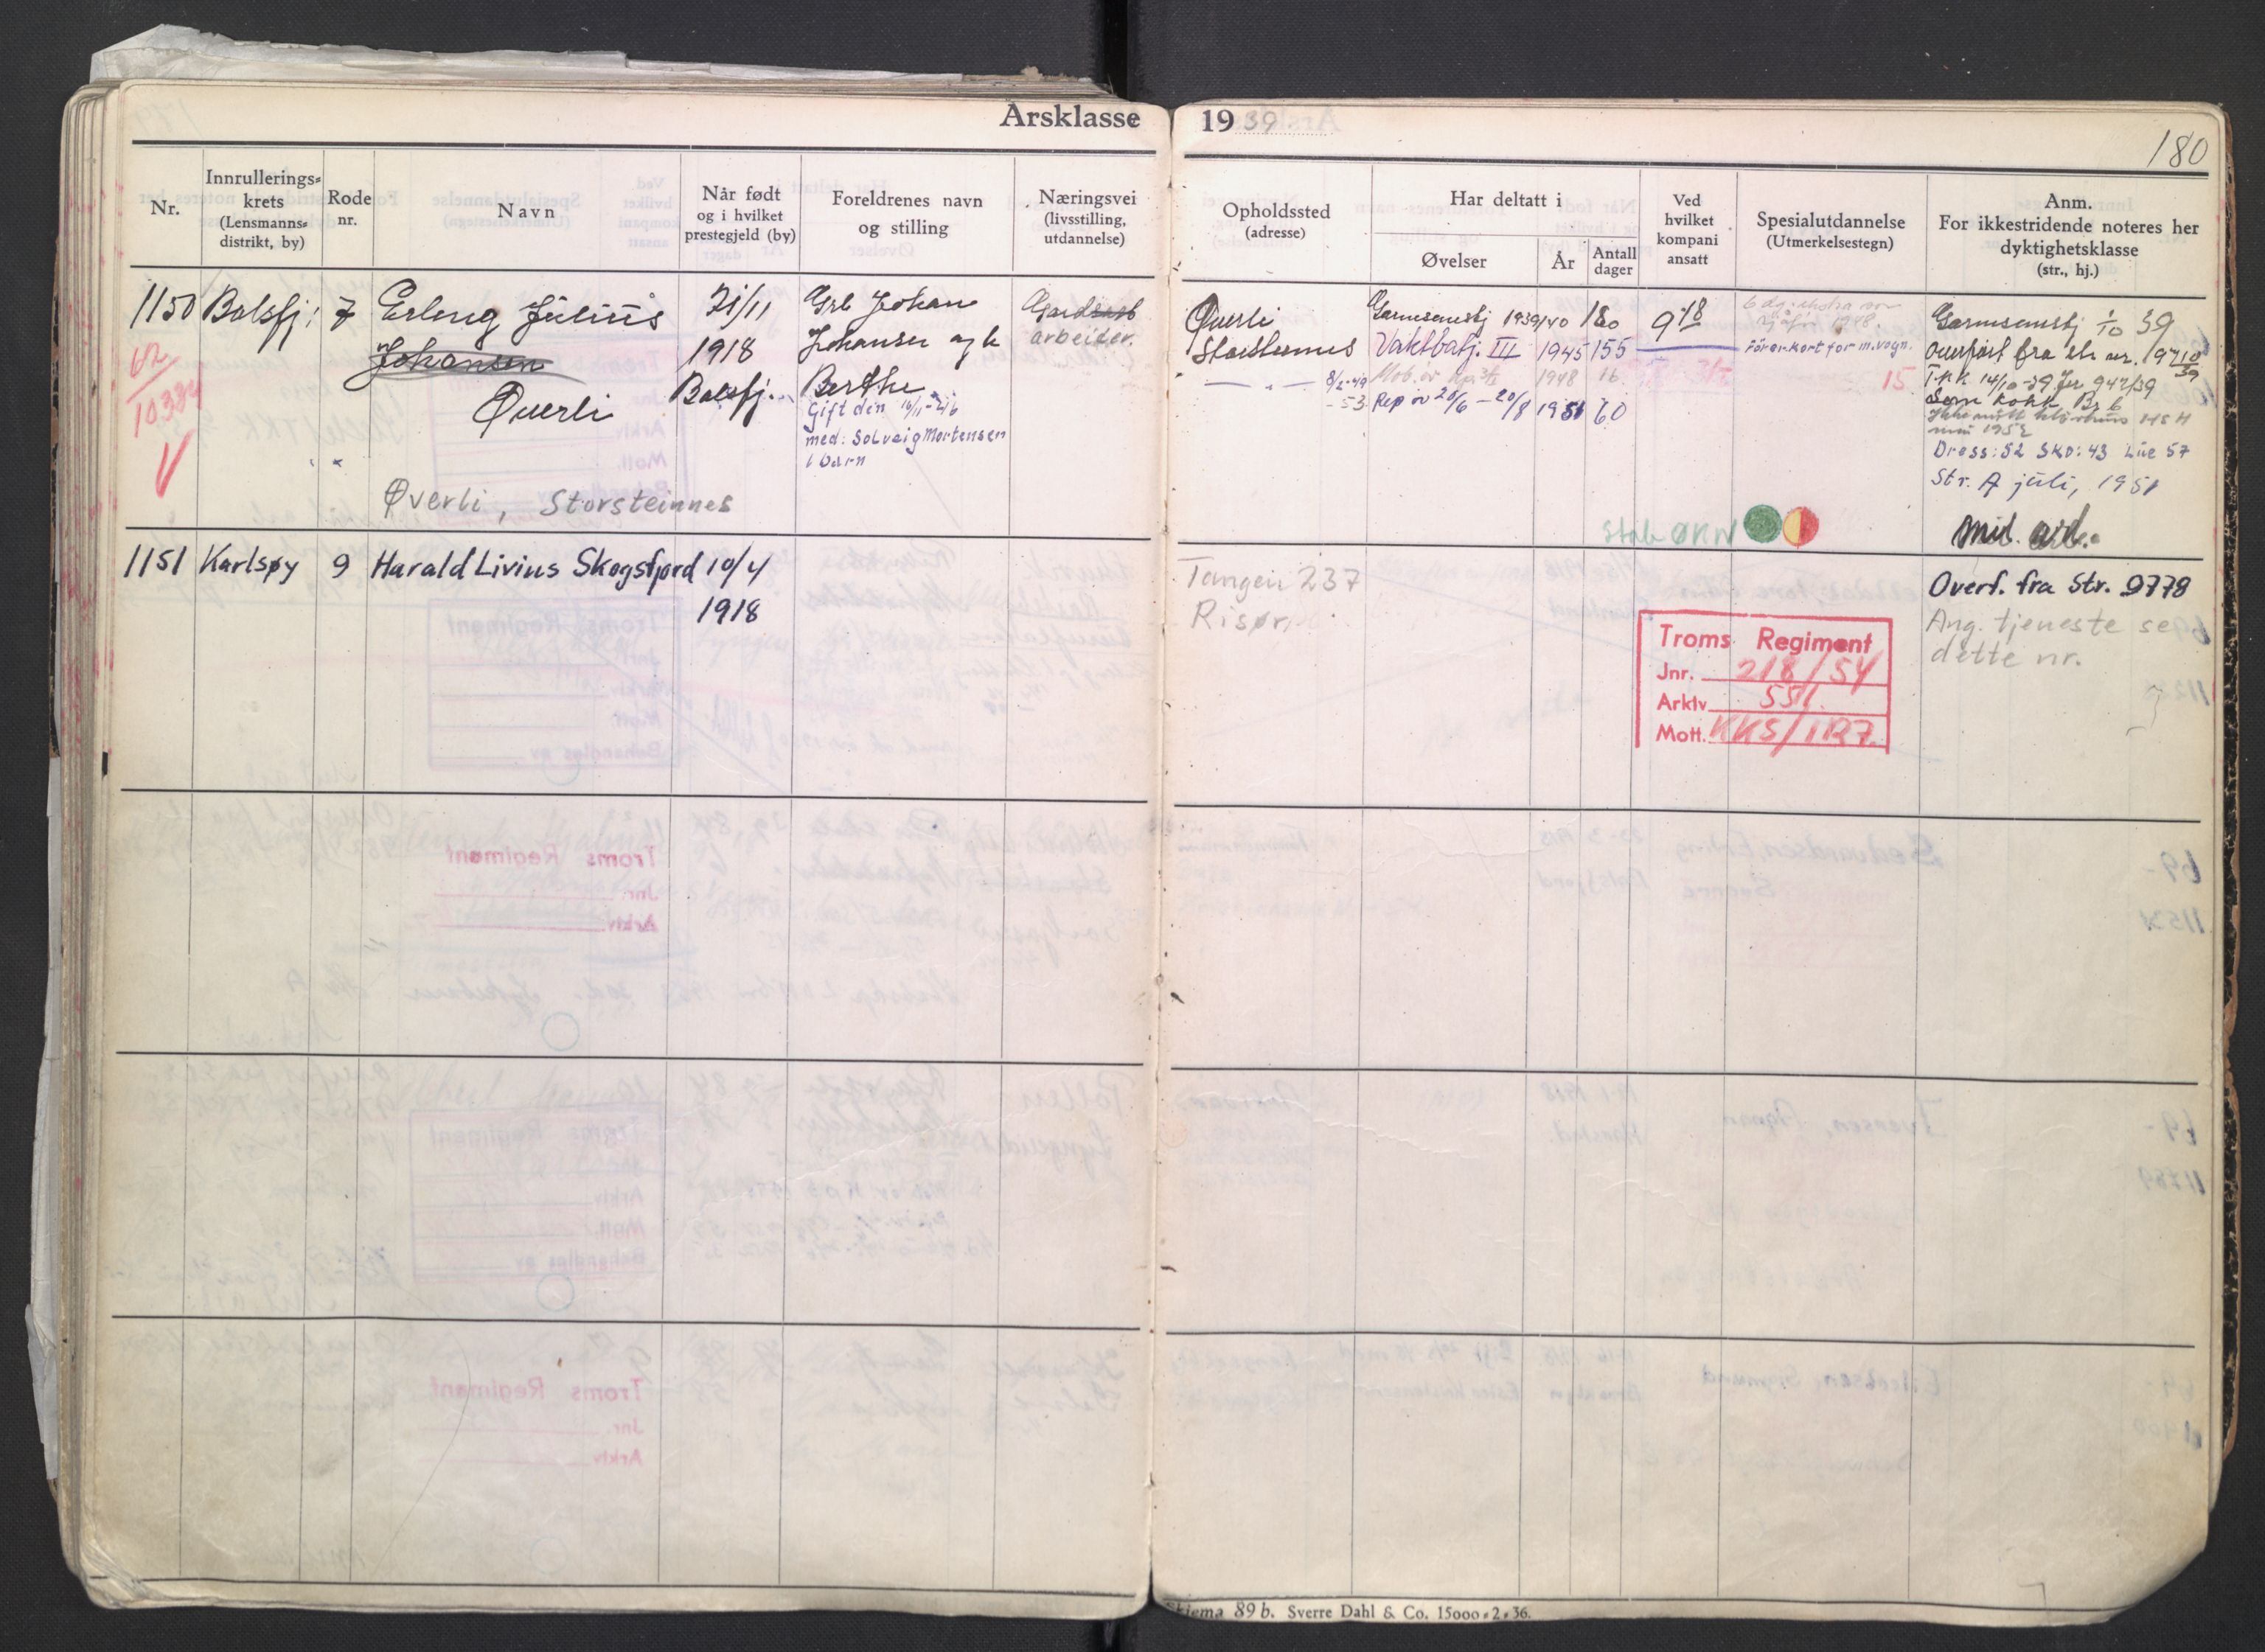 Årsklasse 1939
180
Nr.
Innrullerings-
krets
(Lensmanns-
distrikt, by)
Rode
nr.
Navn
Når født
og i hvilket
prestegjeld (by)
Foreldrenes navn
og stilling
Næringsvei
(livsstilling,
utdannelse)
Opholdssted
(adresse)
Har deltatt i
Øvelser
År
Antall
dager
Ved
hvilket
kompani
ansatt
Spesialutdannelse
(Utmerkelsestegn)
Anm.
For ikkestridende noteres her
dyktighetsklasse
(str., hj.)
1150
62
10384
V
Balsfj.
7
Erling Julius
Johansen
Øverli
Øverli, Storsteinnes
21/11
1918
Balsfj.
Grb Johan
Johansen og h
Berthe
Gift den 16/11-46
med: Solveig Mortensen
1 barn
arbeider.
Øverli
Storsteinnes
— " — 8/2-49
-53
Garnisonstj 1939/40 180
Vaktbatj. III 1945 155
1948 16
Rep øv 20/6 – 20/8 1951 60
Førerkort for m.vogn.
15
Stab ØKN
Garnisonstj 1/10 39
Overført fra str nr. 9710/39
T.K.K. 14/10-39 Jnr 947/39
Som kokk Br 6
Dress: 52 Sko: 43 Lue 57
Str. A juli, 1951
Mil. arb.
1151
Karlsøy
9
Harald Livius Skogsfjord
10/4
1918
Tangen 237
Risør.
Troms Regiment
Jnr. 218/54
Arkiv 551.
Mott. KKS/IR7.
Overf. fra Str. 9778
Ang. tjeneste se
dette nr.
Skjema 89 b. Sverre Dahl & Co. 15000-2-36.